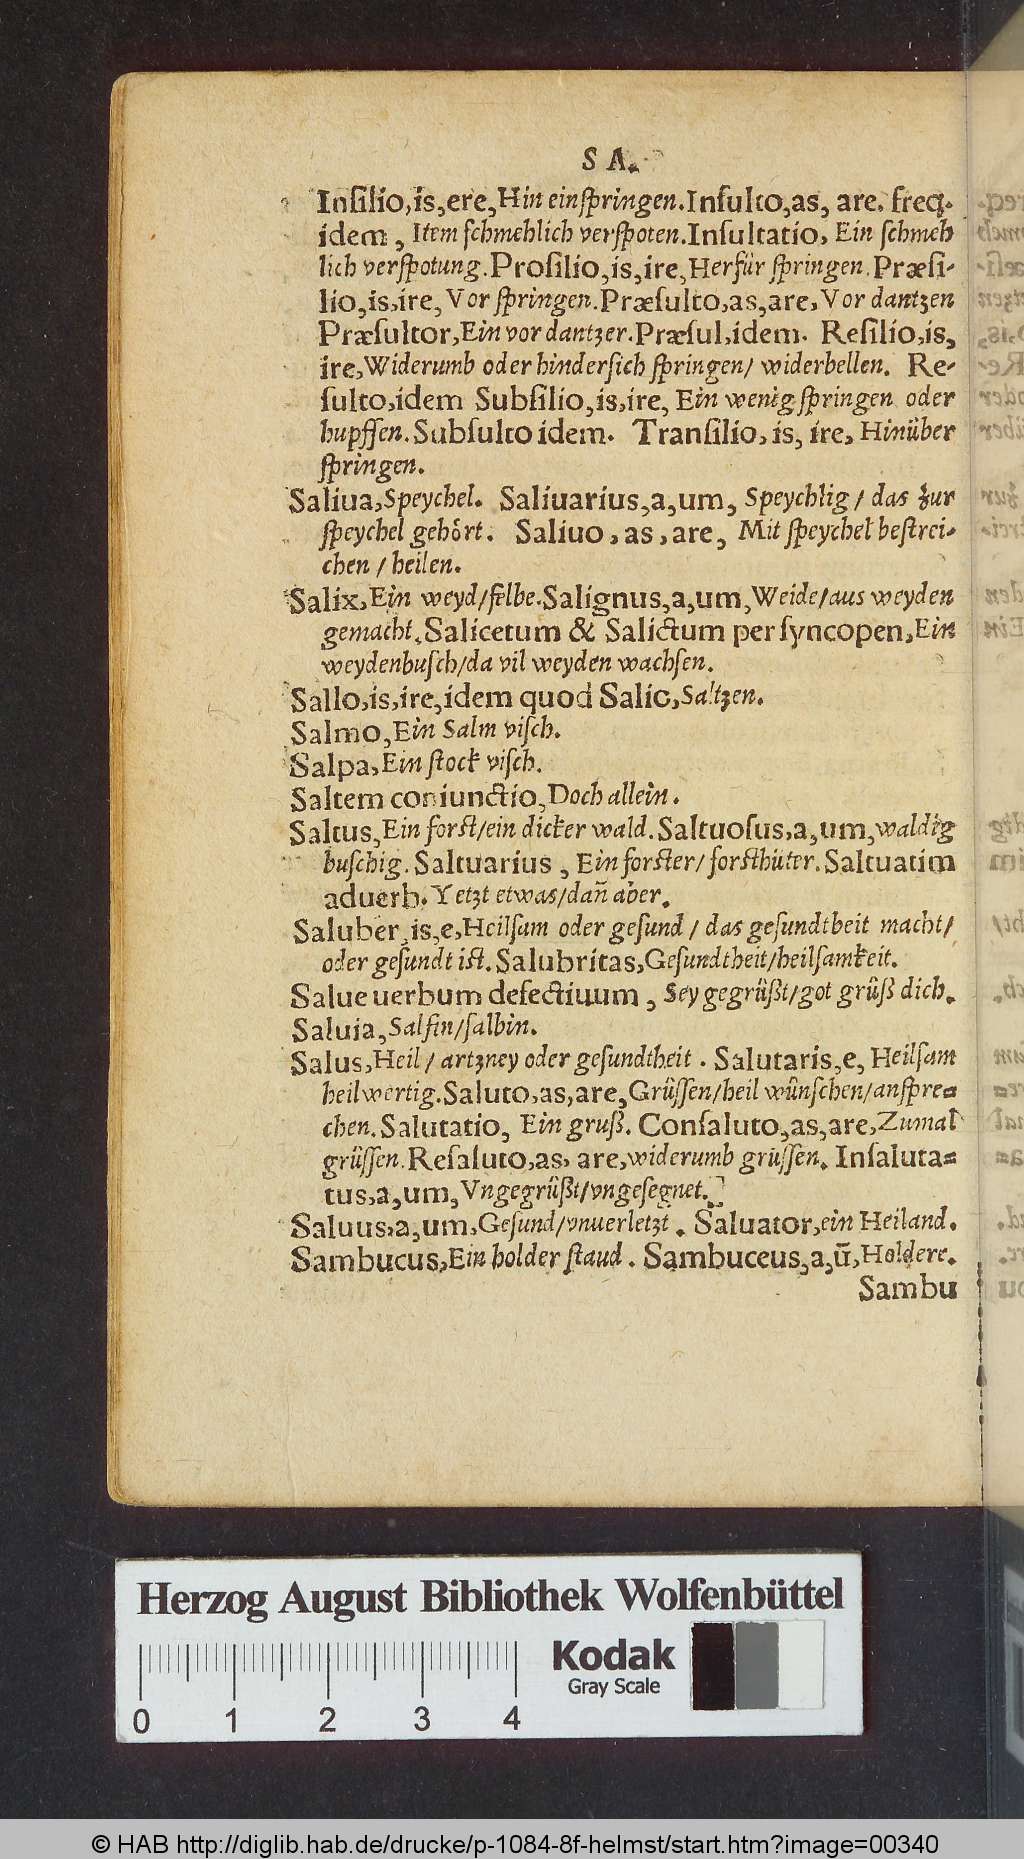 S A.
Inſilio,is,ere,Hin einſpringen.Inſulto,as, are. freq.
idem, Item ſchmehlich verſpoten.Inſultatio, Ein ſchmeh
lich verſpotung.Proſilio,is,ire,Herfür ſpringen.Præſi-
lio,is,ire, Vor ſpringen.Præſulto,as,are, Vor dantzen
Præſultor,Ein vor dantzer.Præſul,idem. Reſilio,is,
ire,Widerumb oder hinderſich ſpringen/ widerbellen. Re-
ſulto,idem Subſilio,is,ire, Ein wenig ſpringen oder
hupffen.Subſulto idem. Tranſilio, is, ire, Hinüber
ſpringen.
Saliua,Speychel. Saliuarius,a,um, Speychlig / das zur
ſpeychel gehört. Saliuo,as,are, Mit ſpeychel beſtrei-
chen / heilen.
Salix,Ein weyd/felbe.Salignus,a,um,Weide/aus weyden
gemacht.Salicetum & Salictum per ſyncopen,Ein
weydenbuſch/da vil weyden wachſen.
Sallo,is,ire,idem quod Salio,Saltzen.
Salmo,Ein Salm viſch.
Salpa,Ein ſtock viſch.
Saltem coniunctio,Doch allein.
Saltus,Ein forſt/ein dicker wald.Saltuoſus,a,um,waldig
buſchig. Saltuarius, Ein forſter/ forſthüter.Saltuatim
aduerb.Yetzt etwas/dañ aber.
Saluber,is,e,Heilſam oder geſund / das geſundtheit macht/
oder geſundt iſt.Salubritas,Geſundtheit/heilſamkeit.
Salue uerbum defectiuum, Sey gegrüßt/got grüß dich.
Saluia,Salfin/ſalbin.
Salus,Heil/ artzney oder geſundtheit. Salutaris,e, Heilſam
heilwertig.Saluto,as,are,Grüſſen/heil wünſchen/anſpre=
chen.Salutatio, Ein gruß. Conſaluto,as,are,Zumal
grüſſen.Reſaluto,as, are,widerumb grüſſen. Inſaluta=
tus,a,um,Vngegrüßt/vngeſegnet.
Saluus,a,um,Geſund/vnuerletzt. Saluator,ein Heiland.
Sambucus,Ein holder ſtaud. Sambuceus,a,ū,Holdere.
Sambu
Herzog August Bibliothek Wolfenbüttel
Kodak
Gray Scale
0 1 2 3 4
© HAB http://diglib.hab.de/drucke/p-1084-8f-helmst/start.htm?image=00340